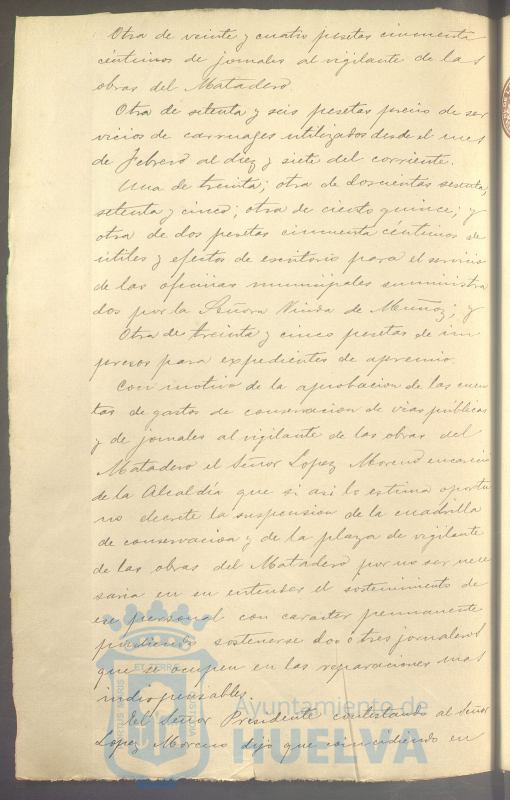 Otra de veinte y cuatro pesetas cincuenta
céntimos de jornales al vigilante de las
obras del Matadero
Otra de setenta y seis pesetas precio de ser
vicios de carruages utilizados desde el mes
de Febrero al diez y siete del corriente.
Una de treinta; otra de doscientas sesenta;
setenta y cinco; otra de ciento quince; y
otra de dos pesetas cincuenta céntimos de
útiles y efectos de escritorio para el servicio
de las oficinas municipales suministra
dos por la Señora Viuda de Muñoz; y
Otra de treinta y cinco pesetas de im
presos para expedientes de apremio.
Con motivo de la aprobacion de las cuen
tas de gastos de conservacion de vias públicas
y de jornales al vigilante de las obras del
Matadero el Señor Lopez Moreno encareció
de la Alcaldía que si asi lo estima oportu
no decrete la suspension de la cuadrilla
de conservacion y de la plaza de vigilante
de las obras del Matadero por no ser nece
saria en su entender el sostenimiento de
ese personal con caracter permanente
pudiendo sostenerse dos ó tres jornaleros
que se ocupen en las reparaciones mas
indispensables.
El Señor Presidente contestando al Señor
Lopez Moreno dijo que coincidiendo en
Ayuntamiento de
HUELVA